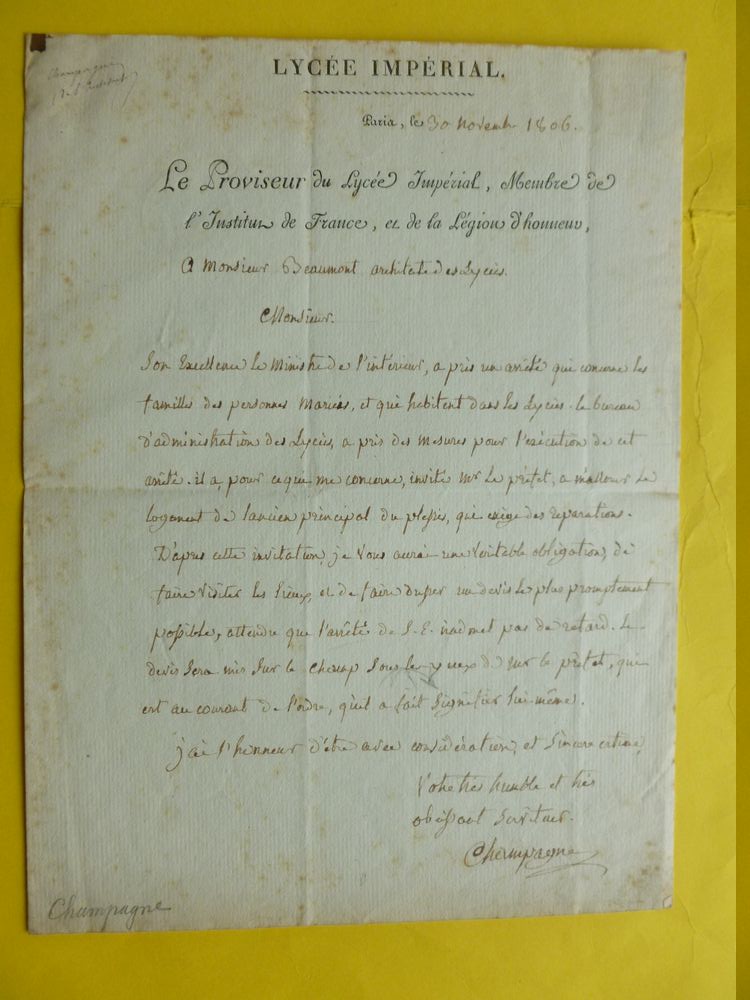 Champagne
LYCÉE IMPÉRIAL.
Paris, le 30 novembre 1806.
Le Proviseur du Lycée Impérial, Membre de
l'Institut de France, et de la Légion d'honneur,
A Monsieur Beaumont architecte des Lycées.
Monsieur.
Son Excellence le Ministre de l'intérieur, a pris un arrêté qui concerne les
familles des personnes mariées, et qui habitent dans les Lycées. le bureau
d'administration des Lycées, a pris des mesures pour l'exécution de cet
arrêté. il a, pour ce qui me concerne, invité Mr le préfet, a m'allouer le
logement de l'ancien principal du plessis, qui exige des reparations.
D'apres cette invitation, je vous aurai une veritable obligation, de
faire visiter les lieux, et de faire dresser un devis le plus promptement
possible, attendu que l'arrêté de S. E. n'admet pas de retard. le
devis sera mis sur le champ sous les yeux de Mr le préfet, qui
est au courant de l'ordre, qu'il a fait signifier lui-même.
j'ai l'honneur d'être avec considération, et sincere estime,
Votre très humble et très
obeissant serviteur.
Champagne
Champagne